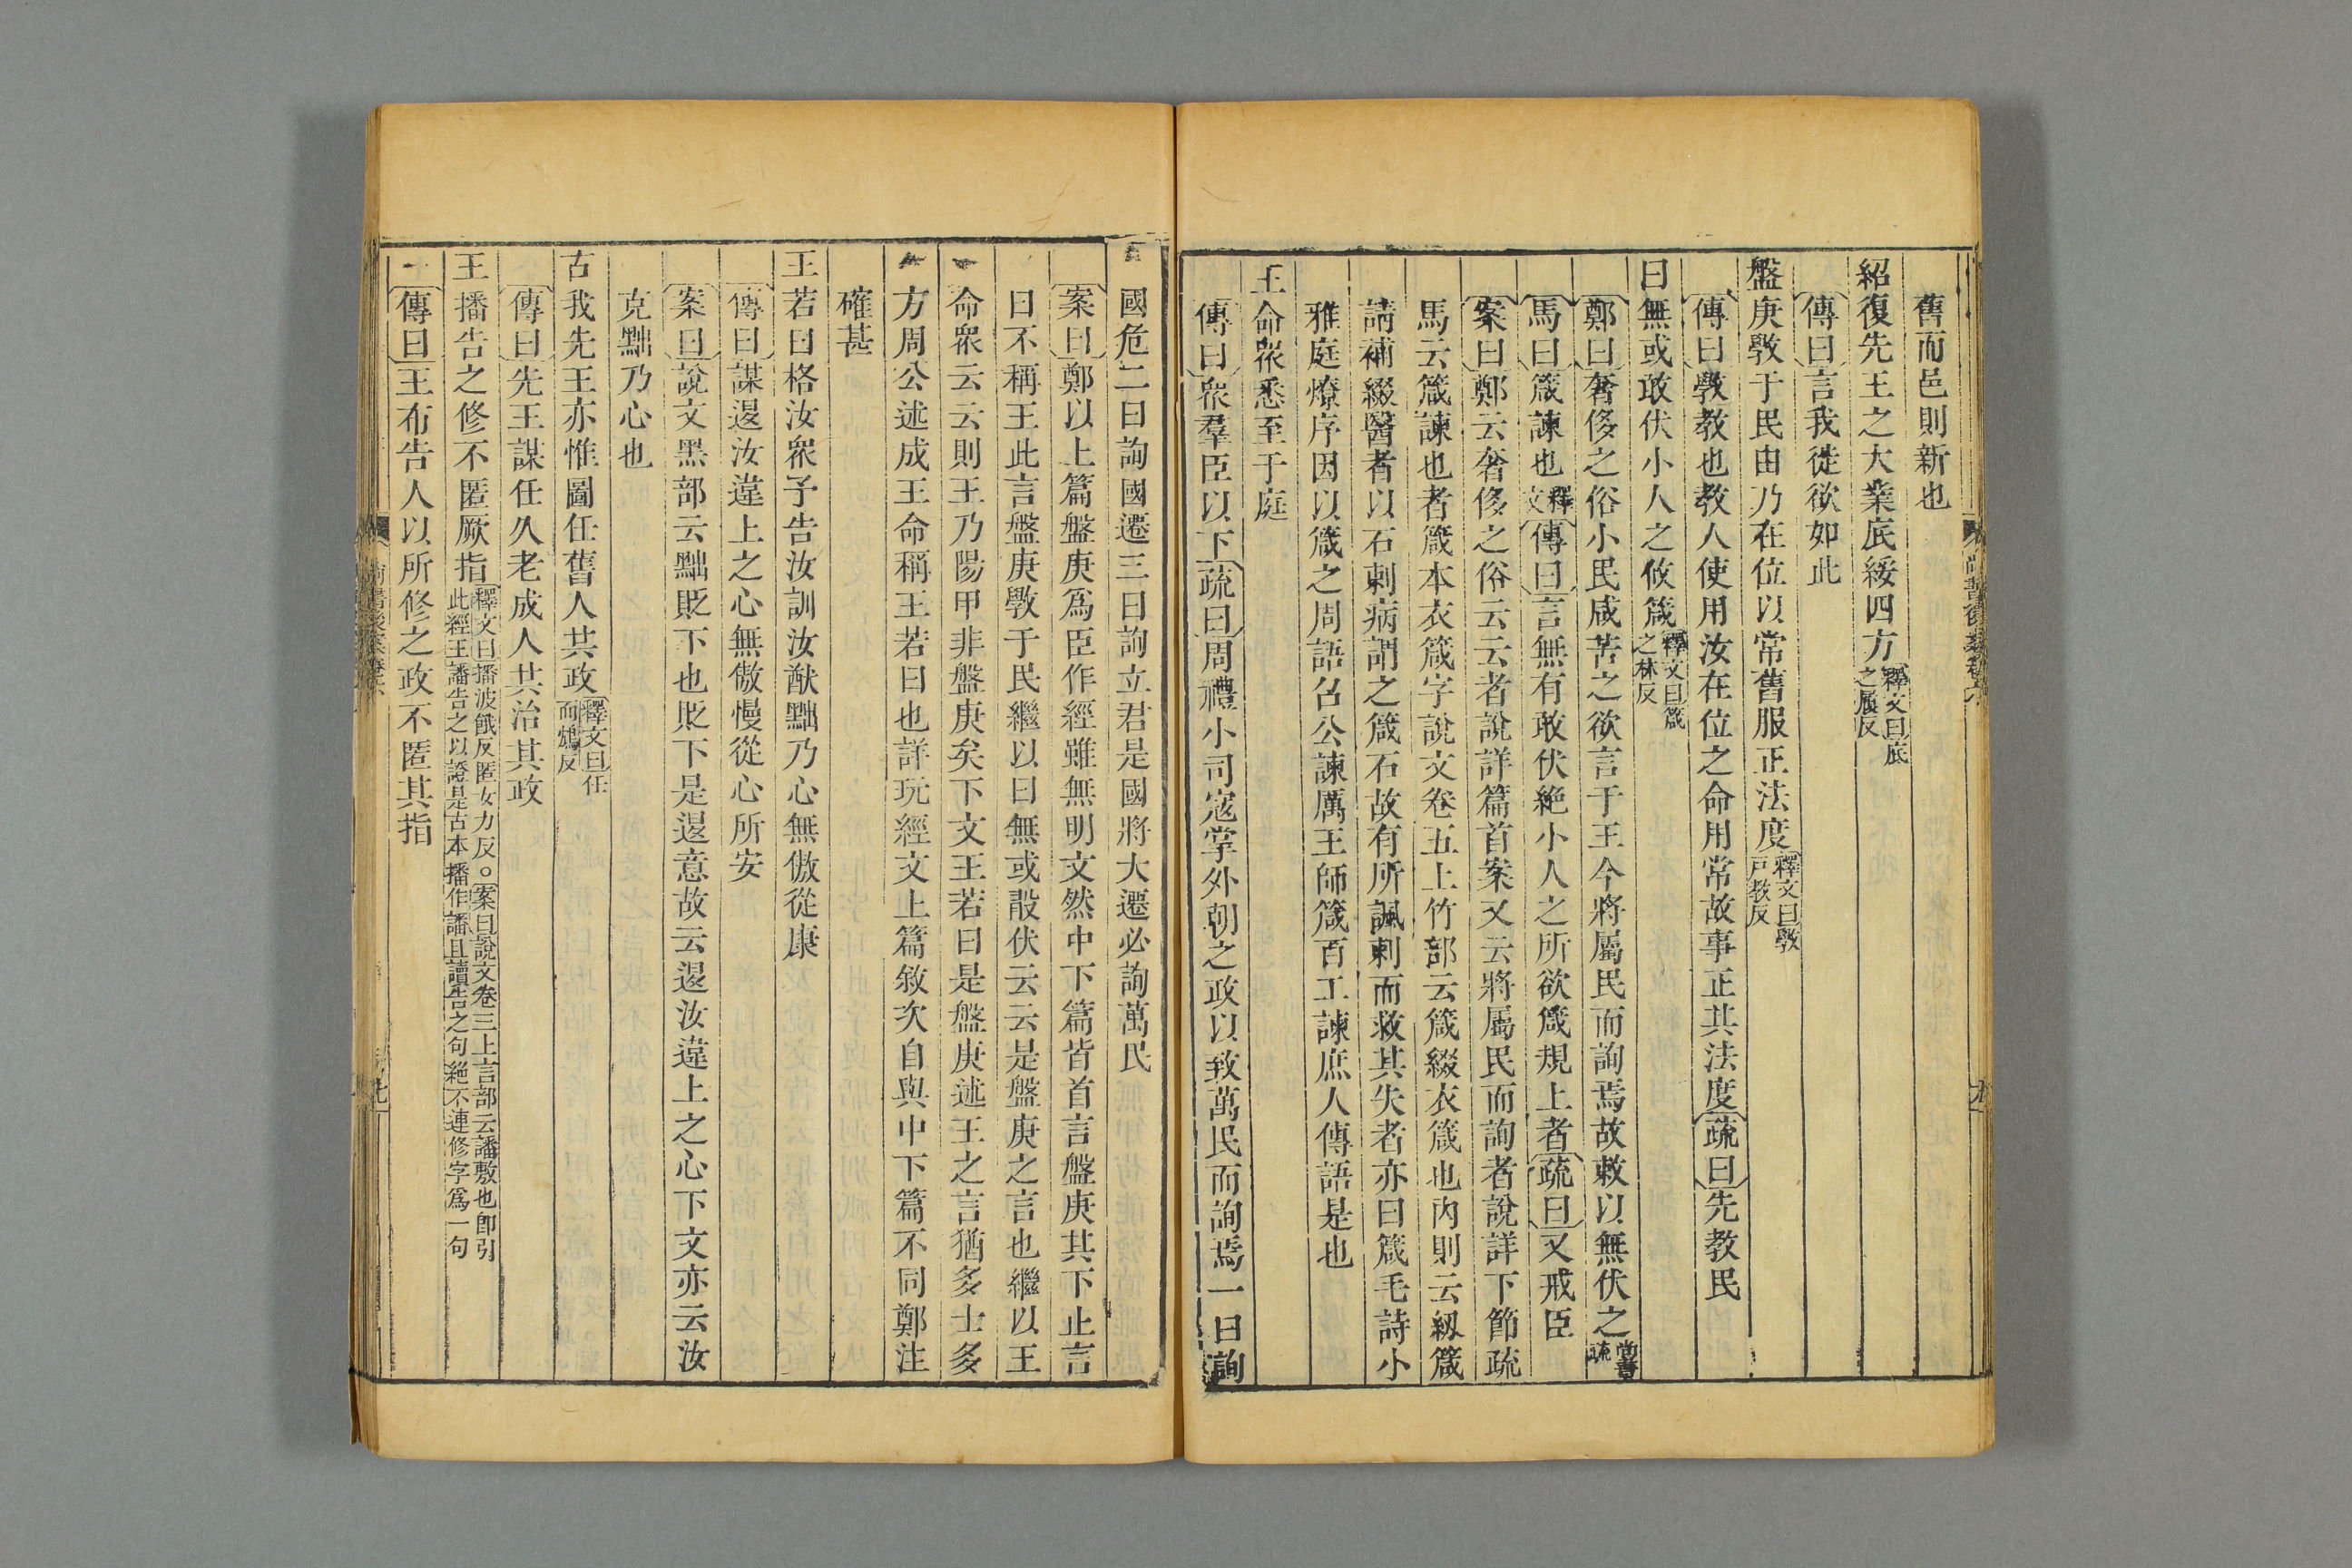 舊而邑則新也
紹復先王之大業底綏四方釋文曰底之履反
傳曰言我徙欲如此
盤庚斆于民由乃在位以常舊服正法度釋文曰斆戸教反
傳曰斆教也教人使用汝在位之命用常故事正其法度疏曰先教民
曰無或敢伏小人之攸箴釋文曰箴之林反
鄭曰奢侈之俗小民咸苦之欲言于王今將屬民而詢焉故敕以無伏之尚書疏
馬曰箴諫也釋文傳曰言無有敢伏絶小人之所欲箴規上者疏曰又戒臣
案曰鄭云奢侈之俗云云者說詳篇首案又云將屬民而詢者說詳下節疏
馬云箴諫也者箴本衣箴字說文卷五上竹部云箴綴衣箴也內則云紉箴
請補綴醫者以石刺病謂之箴石故有所諷刺而救其失者亦曰箴毛詩小
雅庭燎序因以箴之周語召公諫厲王師箴百工諫庶人傳語是也
王命眾悉至于庭
傳曰眾羣臣以下疏曰周禮小司寇掌外朝之政以致萬民而詢焉一曰詢
國危二曰詢國遷三曰詢立君是國將大遷必詢萬民
案曰鄭以上篇盤庚爲臣作經雖無明文然中下篇皆首言盤庚其下止言
曰不稱王此言盤庚斆于民繼以曰無或敢伏云云是盤庚之言也繼以王
命眾云云則王乃陽甲非盤庚矣下文王若曰是盤庚述王之言猶多士多
方周公述成王命稱王若曰也詳玩經文上篇敘次自與中下篇不同鄭注
確甚
王若曰格汝眾予告汝訓汝猷黜乃心無傲從康
傳曰謀退汝違上之心無傲慢從心所安
案曰說文黑部云黜貶下也貶下是退意故云退汝違上之心下文亦云汝
克黜乃心也
古我先王亦惟圖任舊人共政釋文曰任而鴆反
傳曰先王謀任久老成人共治其政
王播告之修不匿厥指釋文曰播波餓反匿女力反。案曰說文卷三上言部云譒敷也卽引此經王譒告之以證是古本播作譒且讀告之句絶不連修字爲一句
傳曰王布告人以所修之政不匿其指